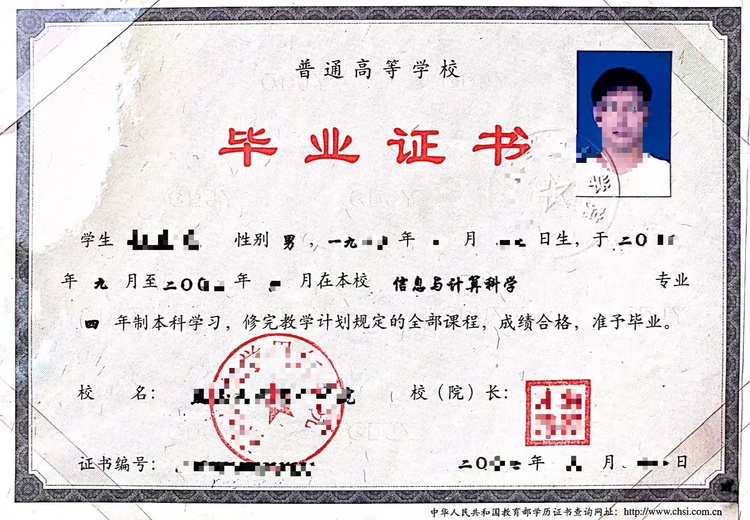 普通高等学校
毕业证书
学生 性别 男，一九 年 月 日生，于二〇
年 九 月至二〇〇 年 月在本校 信息与计算科学 专业
四 年制本科学习，修完教学计划规定的全部课程，成绩合格，准予毕业。
校 名： 院 校（院）长：
证书编号： 二〇〇 年 八 月 日
中华人民共和国教育部学历证书查询网址：http://www.chsi.com.cn